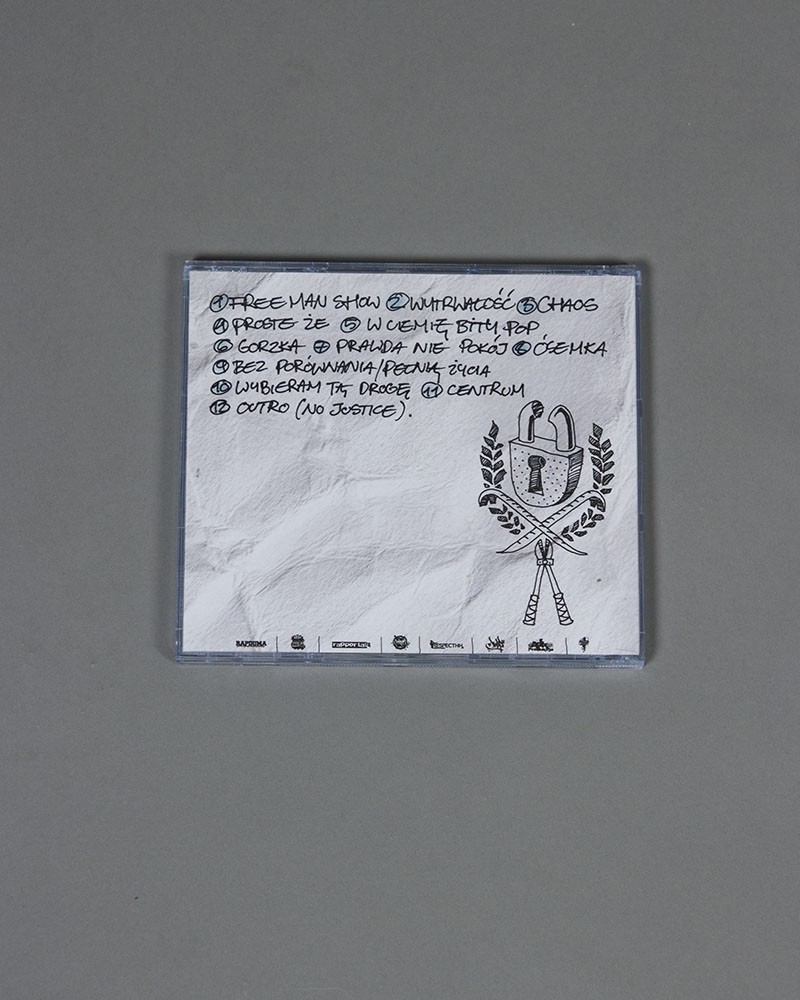 1 FREE MAN SHOW 2 WYTRWAŁOŚĆ 3 CHAOS
4 PROSTE ŻE 5 W CIEMIĘ BITY POP
6 GORZKA 7 PRAWDA NIE POKÓJ 8 ÓSEMKA
9 BEZ PORÓWNANIA/PEŁNIĄ ŻYCIA
10 WYBIERAM TĄ DROGĘ 11 CENTRUM
12 OUTRO (NO JUSTICE).
RAPDUMA